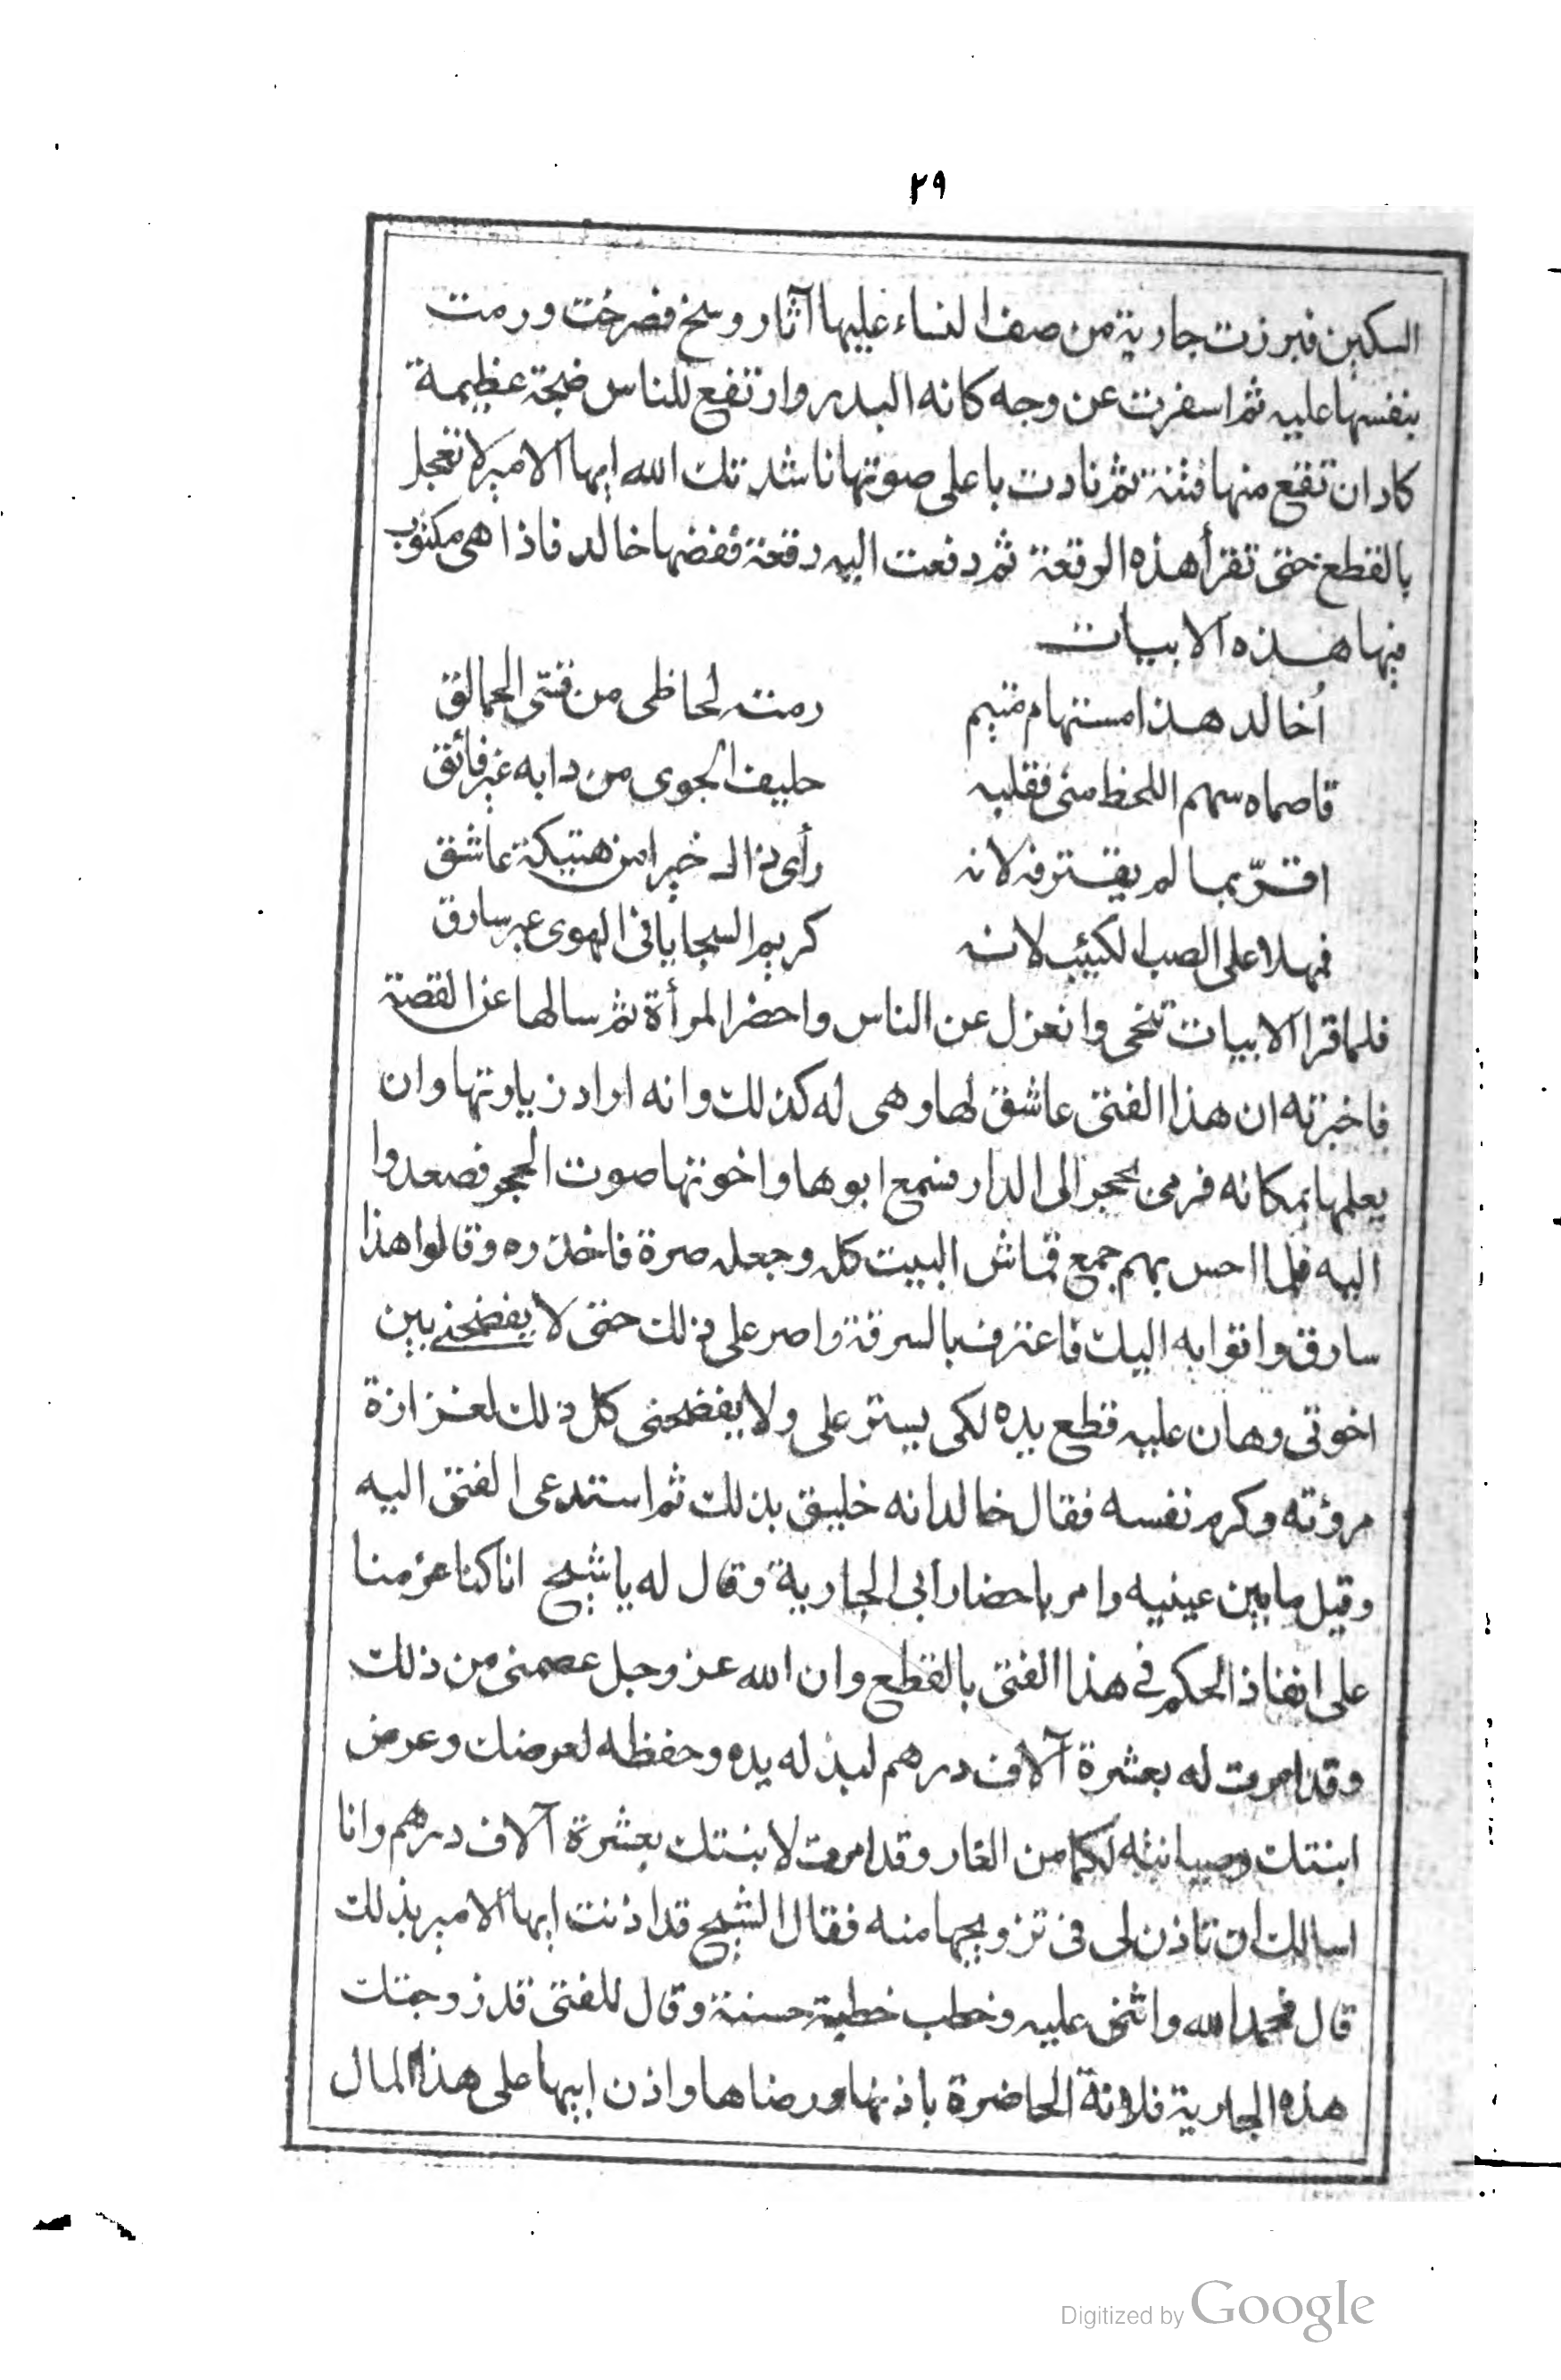 ٢٩
السكين فبرزت جارية من صف النساء عليها آثار وسخ فصرخت ورمت
بنفسها عليه ثم اسفرت عن وجه كانه البدر وارتفع للناس ضجة عظيمة
كاد ان تقع منها فتنة ثم نادت باعلى صوتها ناشدتك الله ايها الامير لا تعجل
بالقطع حتى تقرأ هذه الرقعة ثم دفعت اليه رقعة ففضها خالد فاذا هى مكتوب
فيها هذه الابيات
أخالد هذا مستهام متيم رمته لحاظى من قسى الحمالق
فاصماه سهم اللحظ منى فقلبه حليف الجوى من دابه غير فائق
اقرّ بما لم يقترفه لانه رأى ذاك خيرا من هتيكة عاشق
فمهلا على الصب الكئيب لانه كريم السجايا فى الهوى غير سارق
فلما قرا الابيات تنحى وانعزل عن الناس واحضر المرأة ثم سالها عن القصة
فاخبرته ان هذا الفتى عاشق لها وهى له كذلك وانه اراد زيارتها وان
يعلمها بمكانه فرمى بحجر الى الدار فسمع ابوها واخوتها صوت الحجر فصعدوا
اليه فلما احس بهم جمع قماش البيت كله وجعله صرة فاخذره وقالوا هذا
سارق واتوا به اليك فاعترف بالسرقة واصر على ذلك حتى لا يفضحنى بين
اخوتى وهان عليه قطع يده لكى يستر على ولا يفضحنى كل ذلك لغزازة
مروته وكرم نفسه فقال خالد انه خليق بذلك ثم استدعى الفتى اليه
وقبل ما بين عينيه وامر باحضار ابى الجارية وقال له يا شيخ انا كنا عزمنا
على انفاذ الحكم فى هذا الفتى بالقطع وان الله عز وجل عصمنى من ذلك
وقد امرت له بعشرة آلاف درهم لبذله يده وحفظه لعرضك وعرض
ابنتك وصيانته لكما من العار وقد امرت لابنتك بعشرة آلاف درهم وانا
اسالك ان تاذن لى فى تزويجها منه فقال الشيخ قد اذنت ايها الامير بذلك
قال فحمد الله واثنى عليه وخطب خطبة حسنة وقال للفتى قد زوجتك
هذه الجارية فلانة الحاضرة باذنها ورضاها واذن ابيها على هذا المال
Digitized by Google